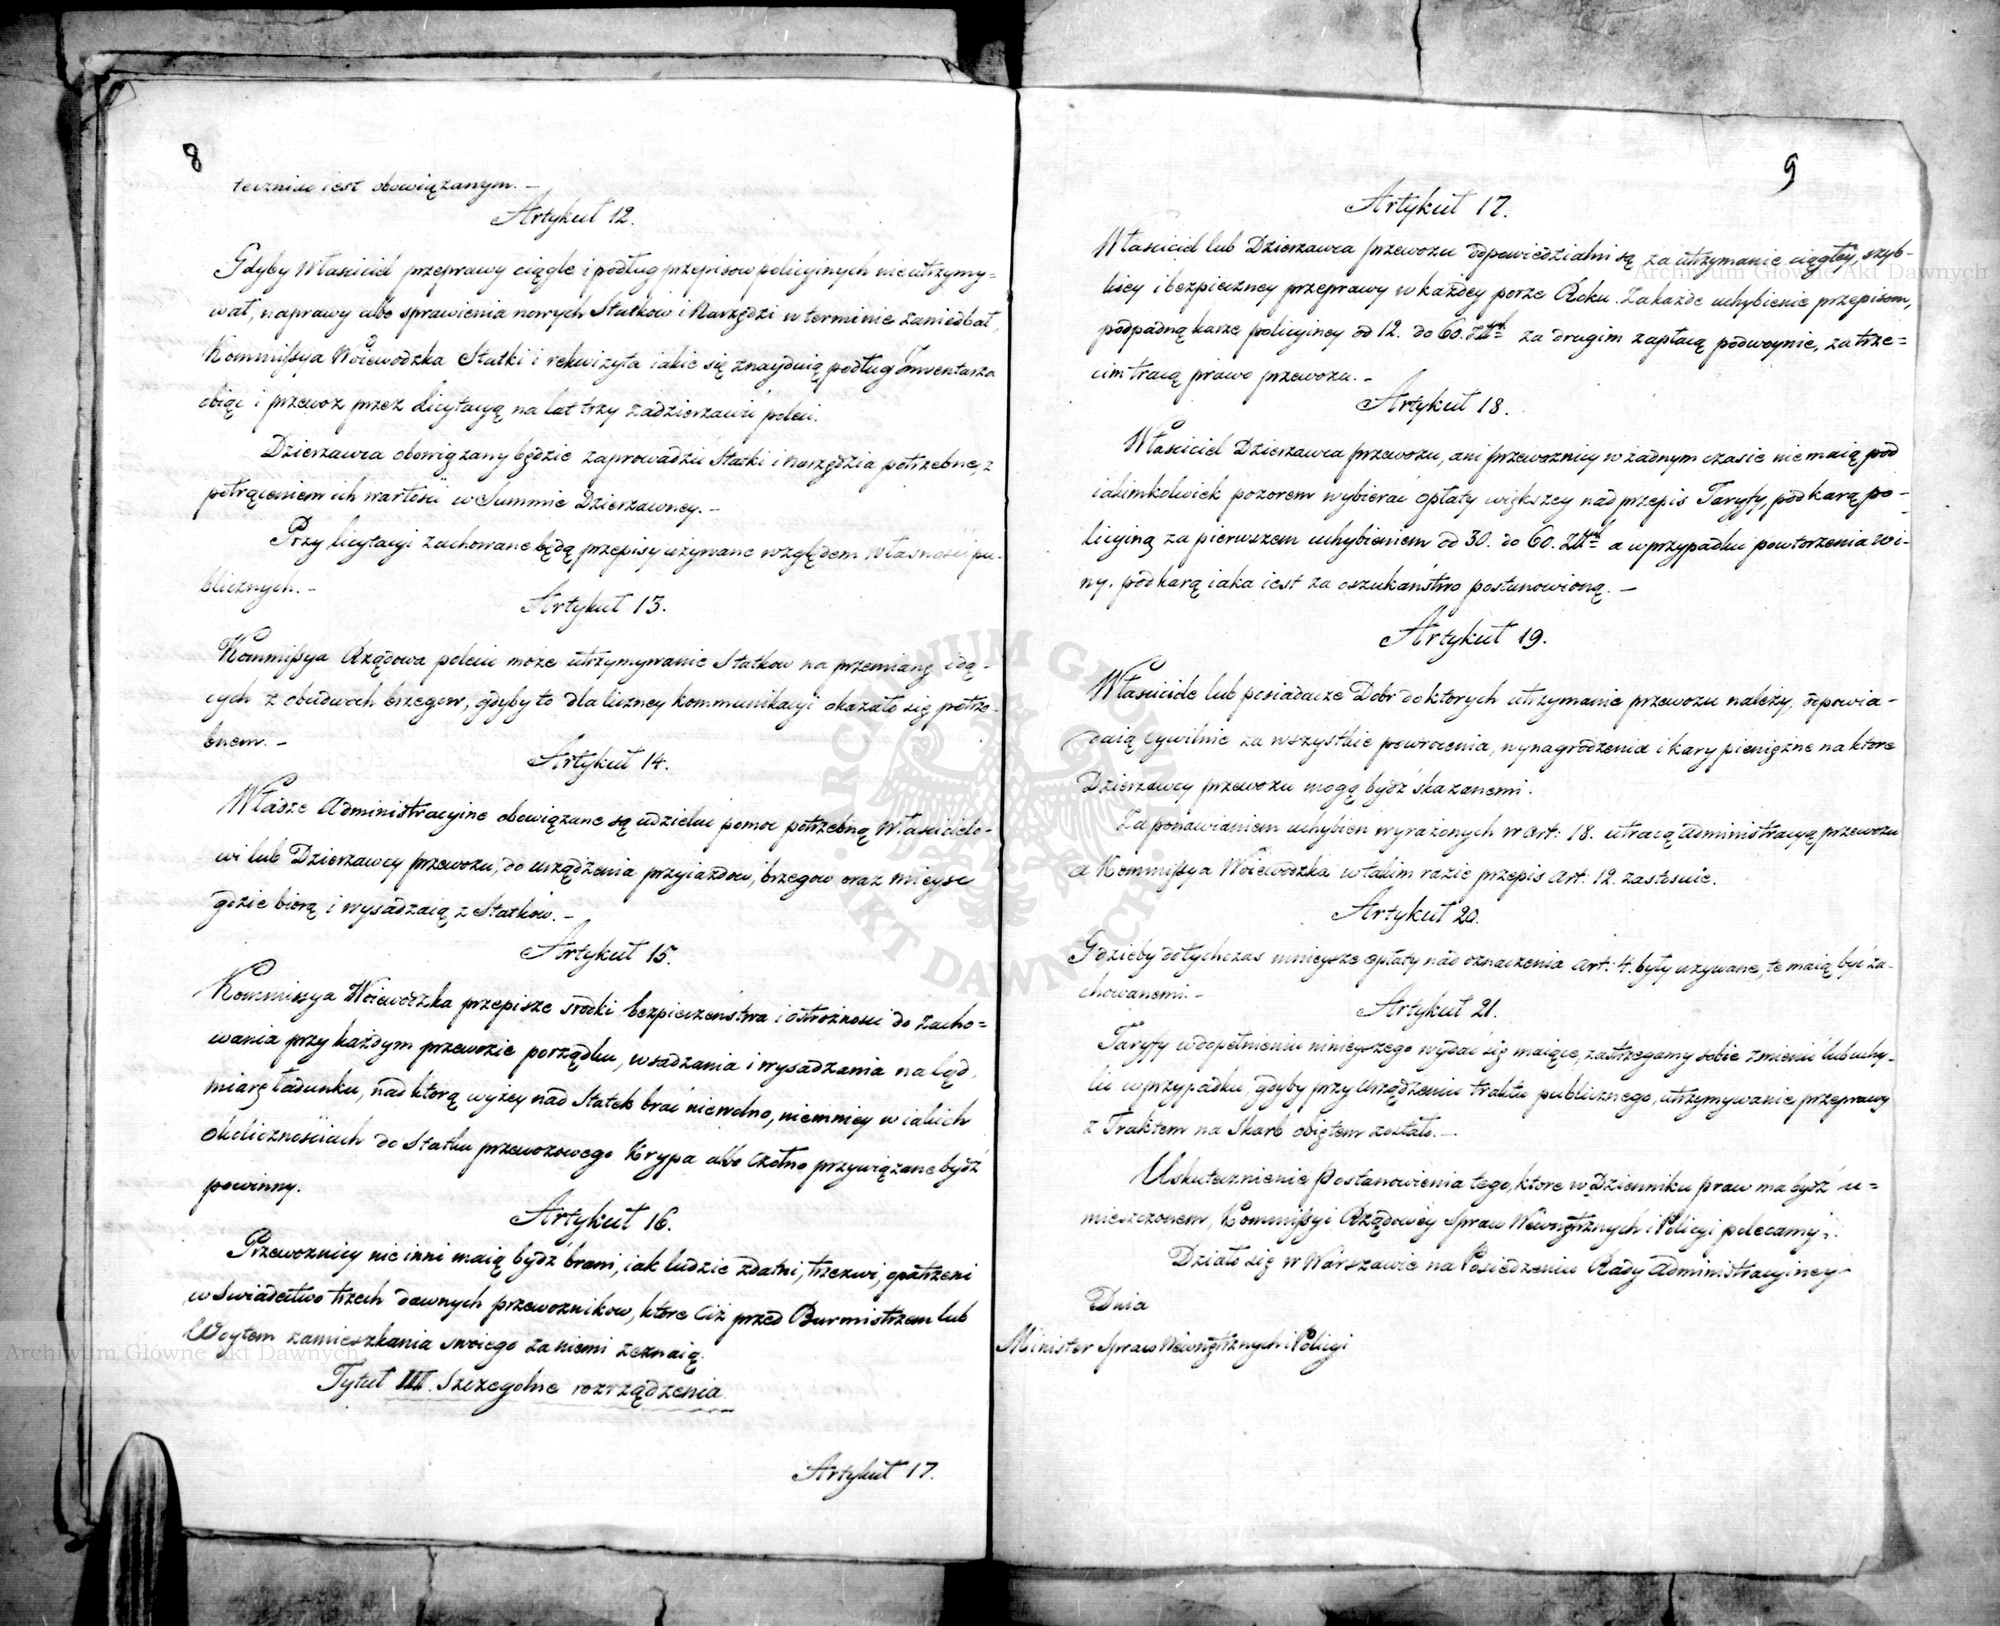 8
tecznie iest obowiązanym. –
Artykuł 12.
Gdyby Właściciel przeprawy ciągle i podług przepisow policyinych nieutrzymy=
wał, naprawy albo sprawienia nowych Statkow i Narzędzi w terminie zaniedbał,
Kommissya Woiewodzka Statki i rekwizyta iakie się znayduią podług Inwentarza
obiąć i przewoz przez Licytacyą na lat trzy zadzierzawić poleci.
Dzierzawca obowiązany będzie zaprowadzić Statki i Narzędzia potrzebne, z
potrąceniem ich wartości w Summie Dzierzawney. –
Przy licytacyi zachowane będą przepisy używane względem własności pu-
blicznych. –
Artykuł 13.
Kommissya Rządowa polecić może utrzymywanie Statkow na przemianę idą-
cych z obudwoch brzegow, gdyby to dla liczney kommunikacyi okazało się potrze-
bnem. –
Artykuł 14.
Władze Administracyine obowiązane są udzielać pomoc potrzebną Właścicielo-
wi lub Dzierzawcy przewozu, do urządzenia przyiazdow, brzegow oraz mieysc
gdzie biorą i wysadzaią z Statkow. –
Artykuł 15.
Kommissya Woiewodzka przepisze srodki bezpieczeństwa i ostrożności do zacho=
wania przy każdym przewozie porządku, wsadzania i wysadzania na ląd,
miarę ładunku, nad ktorą wyżey nad Statek brać niewolno, niemniey w iakich
okolicznościach do Statku przewozowego Krypa albo Czołno przywiązane bydź
powinny.
Artykuł 16.
Przewoznicy nie inni maią bydź brani, iak ludzie zdatni, trzezwi, opatrzeni
w swiadectwo trzech dawnych przewoznikow, ktore Ciż przed Burmistrzem lub
Woytem zamieszkania swoiego za niemi zeznaią.
Tytuł III. Szczegolne rozrządzenia.
Artykuł 17.
9
Artykuł 17.
Właściciel lub Dzierzawca przewozu odpowiedzialni są za utrzymanie ciągłey, szyb-
kiey i bezpieczney przeprawy w każdey porze Roku. Za każde uchybienie przepisom,
podpadną karze policyiney od 12. do 60. Złł za drugim zapłacą podwoynie, za trze=
cim tracą prawo przewozu. –
Artykuł 18.
Właściciel Dzierzawca przewozu, ani przewoznicy w żadnym czasie nie maią pod
iakimkolwiek pozorem wybierać opłaty większey nad przepis Taryfy, pod karą po-
licyiną za pierwszem uchybieniem od 30. do 60. Złł a w przypadku powtorzenia wi-
ny, pod karą iaka iest za oszukaństwo postanowioną. –
Artykuł 19.
Właściciele lub posiadacze Dobr do ktorych utrzymanie przewozu należy, odpowia-
daią Cywilnie za wszystkie powrocenia, wynagrodzenia i kary pieniężne na ktore
Dzierzawcy przewozu mogą bydź skazanemi.
Za ponawianiem uchybien wyrażonych w Art: 18. utracą Administracyą przewozu
a Kommissya Woiewodzka w takim razie przepis Art: 12. zastosuie.
Artykuł 20.
Gdzieby dotychczas mnieysze opłaty nad oznaczenia Art: 4. były używane, te maią być za-
chowanemi. –
Artykuł 21.
Taryfy w dopełnieniu ninieyszego wydać się maiące, zastrzegamy sobie zmienić lub uchy-
lić w przypadku, gdyby przy urządzeniu traktu publicznego, utrzymywanie przeprawy
z Traktem na Skarb obiętem zostało. –
Uskutecznienie Postanowienia tego, ktore w Dzienniku praw ma bydź u=
mieszczonem, Kommissyi Rządowey Spraw Wewnętrznych i Policyi polecamy.
Działo się w Warszawie na Posiedzeniu Rady Administracyiney
Dnia
Minister Spraw Wewnętrznych i Policyi
Archiwum Główne Akt Dawnych
Archiwum Główne Akt Dawnych
ARCHIWUM GŁÓWNE AKT DAWNYCH